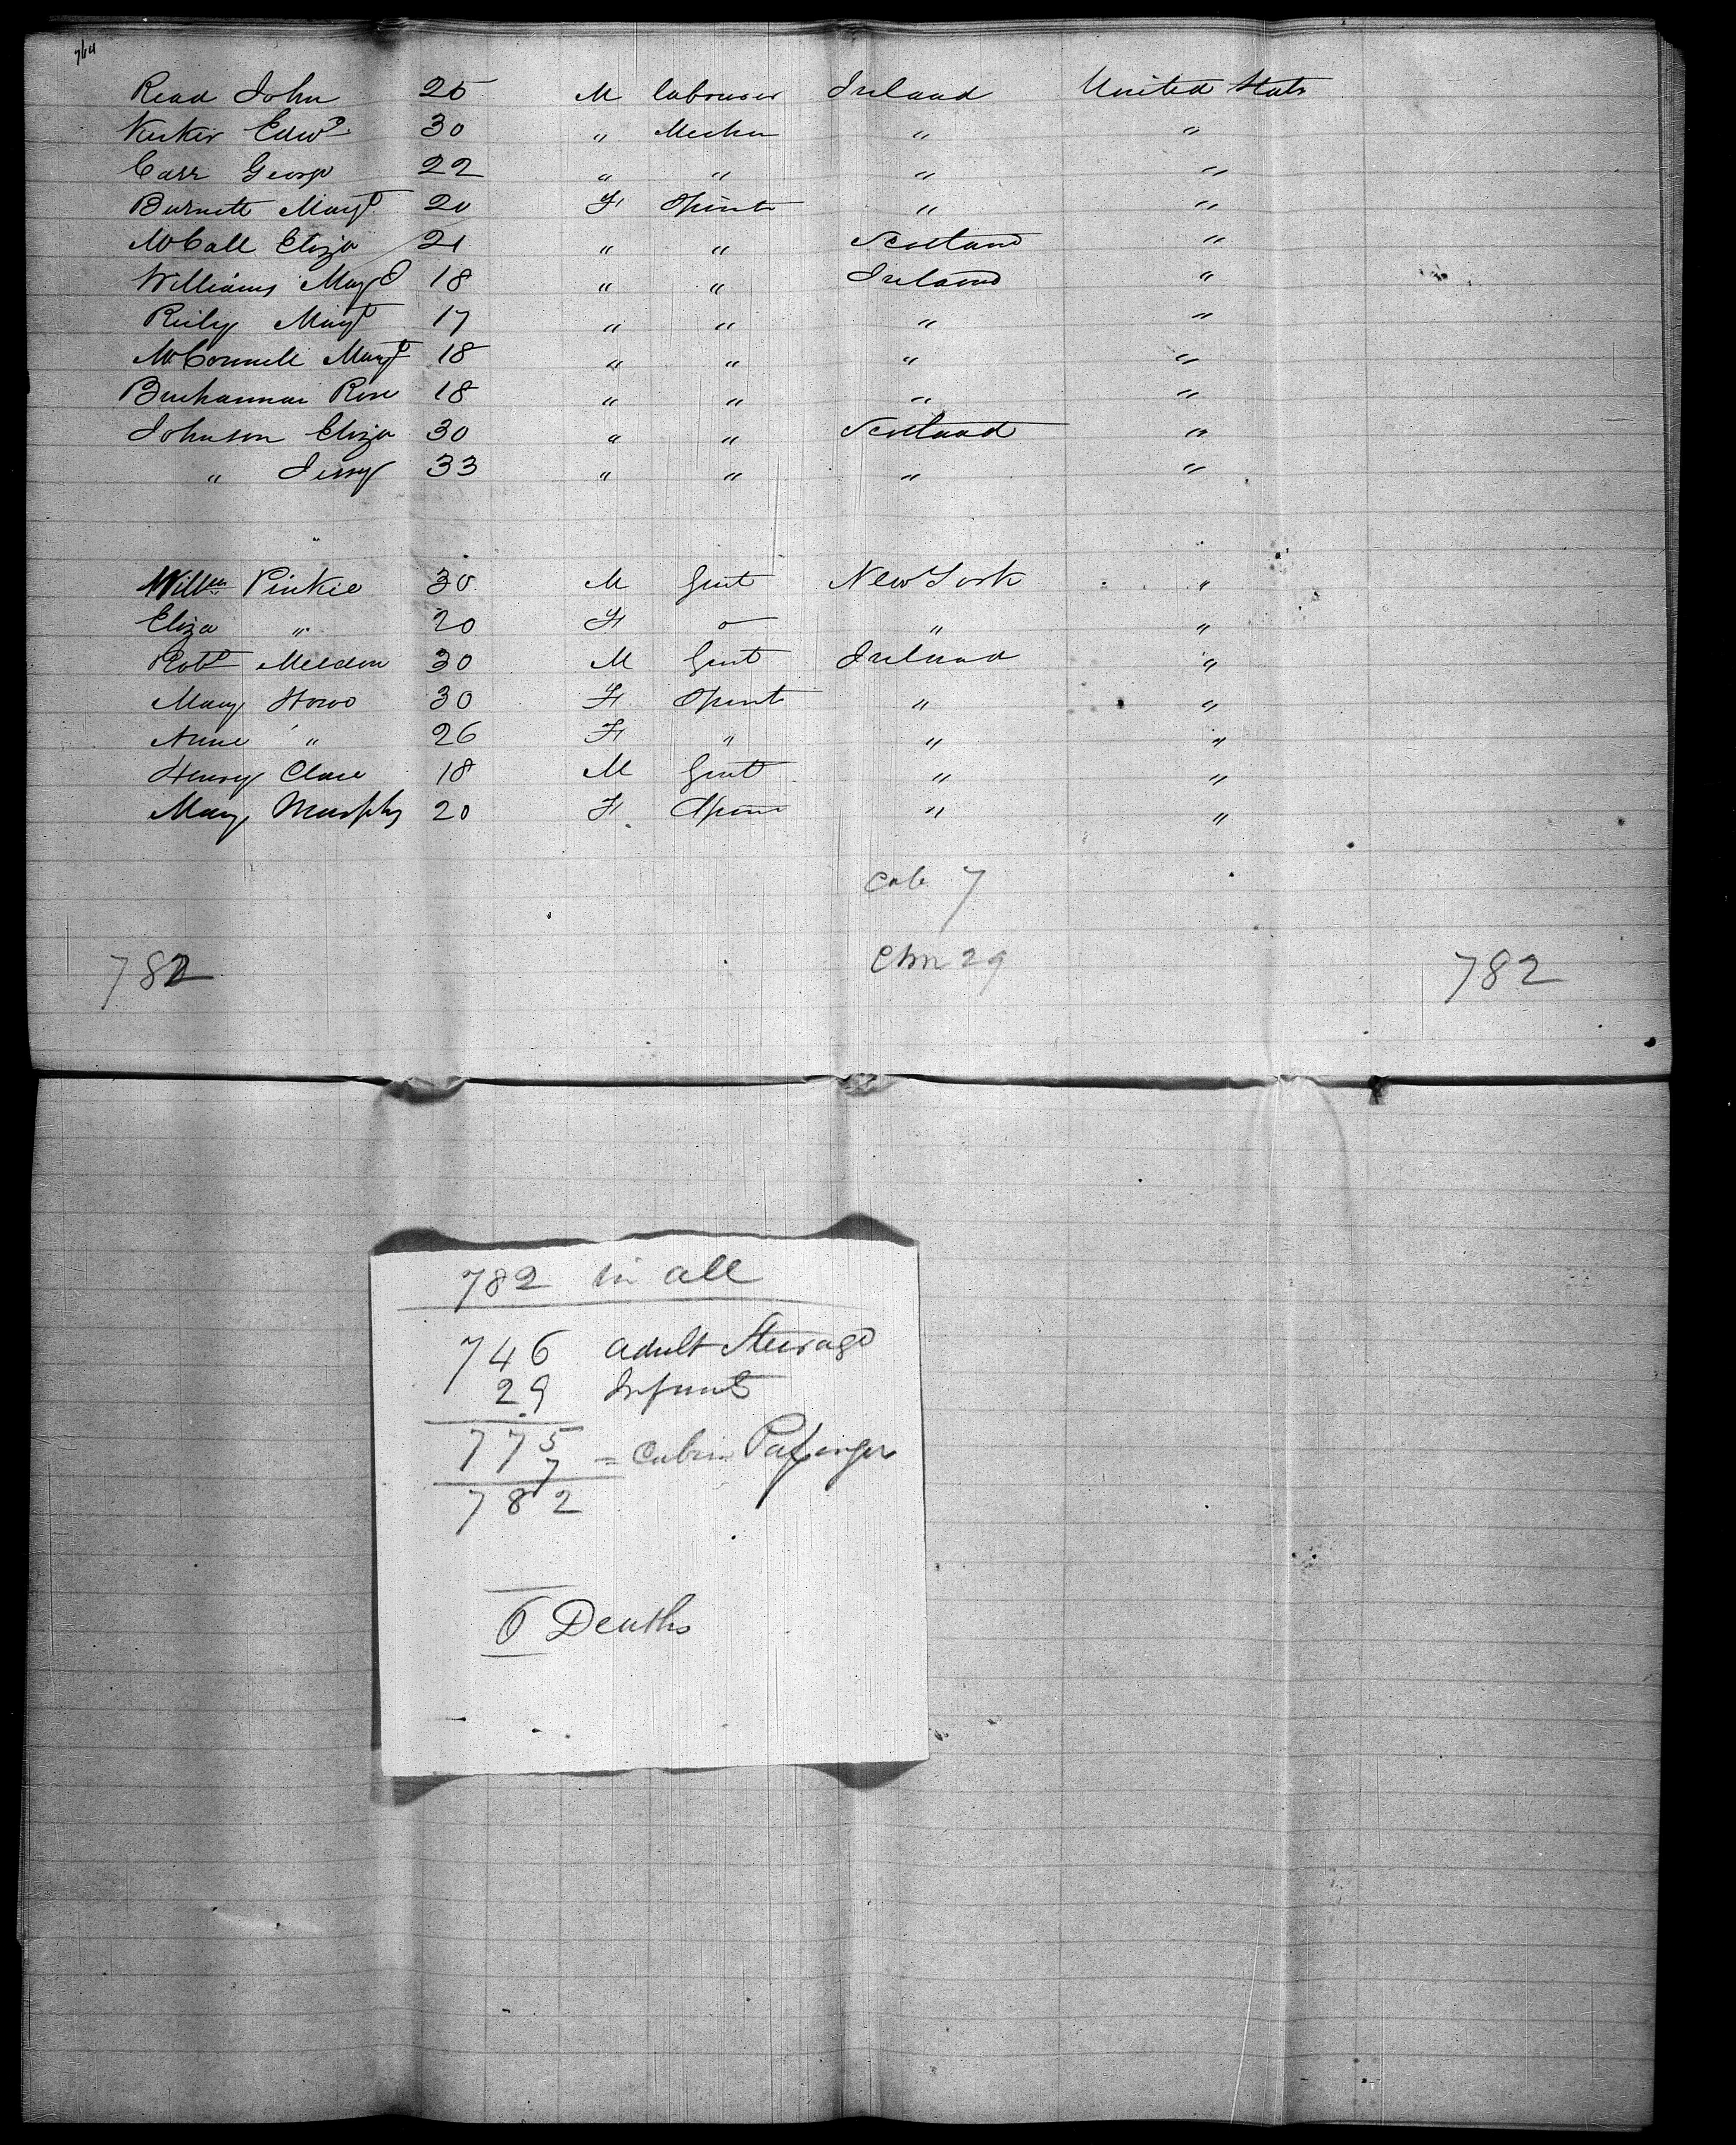 764
Read John 25 M labourer Ireland United Stats
Edwd 30 " Mechn " "
Carr George 22 " " " "
Burnett Margt 20 F Spinst " "
McCall Eliza 21 " " Scotland "
Williams Margt 18 " " Ireland "
Reily Margt 17 " " " "
McConnell Margt 18 " " " "
Buchannan Rose 18 " " " "
Johnson Eliza 30 " " Scotland "
" Jessy 33 " " " "
Willm Pinkie 30 M Gent New York "
Eliza " 20 F " "
Robt 30 M Gent Ireland "
Mary 30 F Spinst " "
Anne " 26 F " " "
Henry Clare 18 M Gent " "
Mary Murphy 20 F Spins " "
Cab 7
782 Chn 29 782
782 in all
746 adult Steerage
29 Infants
775
7 = Cabin Passenger
782
6 Deaths